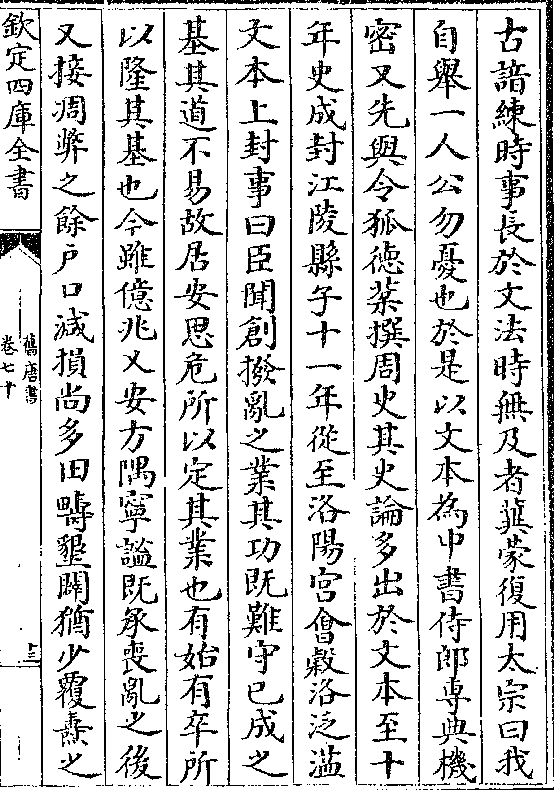 古諳練時事長於文法時無及者冀蒙復用太宗曰我
自舉一人公勿憂也於是以文本為中書侍郎専典機
密又先與令狐徳棻撰周史其史論多出於文本至十
年史成封江陵縣子十一年從至洛陽宫㑹穀洛泛溢
文本上封事曰臣聞創撥亂之業其功既難守已成之
基其道不易故居安思危所以定其業也有始有卒所
以隆其基也今雖億兆乂安方隅寧謐既承喪亂之後
又接凋弊之餘户口减損尚多田疇墾闢猶少覆燾之
欽定四庫全書
舊唐書
卷七十
十三